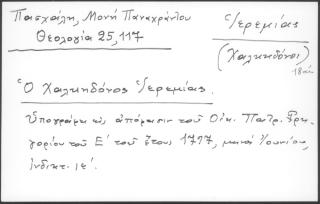 Πασχάλη, Μονή Παναχράντου
Θεολογία 25, 117
Ἱερεμίας
(Χαλκηδόνος)
18 αἰ.
Ὁ Χαλκηδόνος Ἱερεμίας.
Ὑπογράφει εἰς ἀπόφασιν τοῦ Οἰκ. Πατρ. Γρη-
γορίου τοῦ Ε΄ τοῦ ἔτους 1797, μηνὸς Ἰουνίου,
ἰνδικτ. ιε΄.